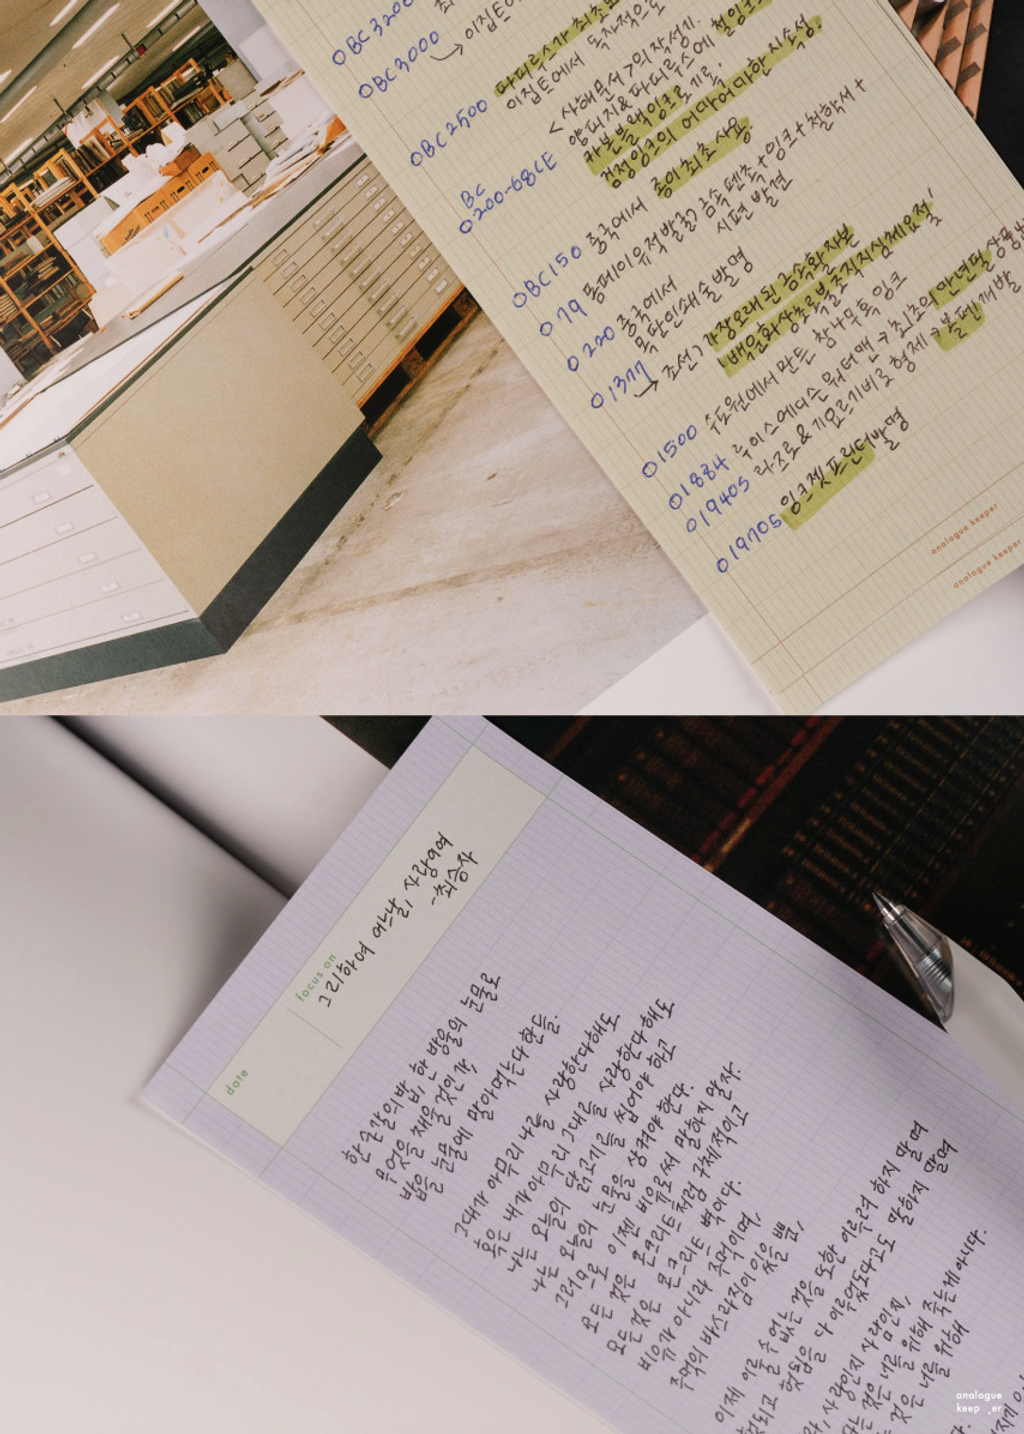 OBC3200
OBC3000 → 이집트
OBC2500 파피루스가 최초
이집트에서 독자적으로
< 사해문서 > 의 작성기.
양피지 & 파피루스에 철잉크
카본블랙잉크로 기록.
검정잉크의 어마어마한 지속성.
BC
0200-68CE
중이 최초 사용.
OBC150 중국에서
079 폼페이 유적 발굴) 금속 펜촉 + 잉크 + 철학서 +
시펜 발견
0220 중국에서
목판인쇄술 발명
01377 → 조선) 가장 오래된 금속활자본
'백운화상초록불조직지심체요절'
01500 수도원에서 만든 참나무 혹 잉크
01884 루이스 에디슨 워터맨 ㄱ 최초의 만년필 상품
01940s 라즈로 & 기요르기 비로 형제 ㄱ 볼펜 개발
01970s 잉크젯 프린터 발명
analogue keeper
analogue keeper
date
focus on
그리하여 어느날, 사랑이여
-최승자
한 숟갈의 밥, 한 방울의 눈물로
무엇을 채울 것인가,
밥을 눈물에 말아 먹는다 한들.
그대가 아무리 나를 사랑한다해도
혹은 내가 아무리 그대를 사랑한다해도
나는 오늘의 닭고기를 씹어야 하고
나는 오늘의 눈물을 삼켜야 한다.
그러므로 이젠 비유로써 말하지 말자.
모든 것은 콘크리트처럼 구체적이고
모든 것은 콘크리트 벽이다.
비유가 아니라 주먹이며,
주먹의 바스라짐이 있을 뿐,
이제 이룰 수 없는 것을 또한 이루려 하지 말며
헛되고 헛됨을 다 이루었다고도 말하지 말며
사랑인지 사람인지,
것은 너를 위해 죽는게 아니다.
것은 너를 위해
analogue
keep er